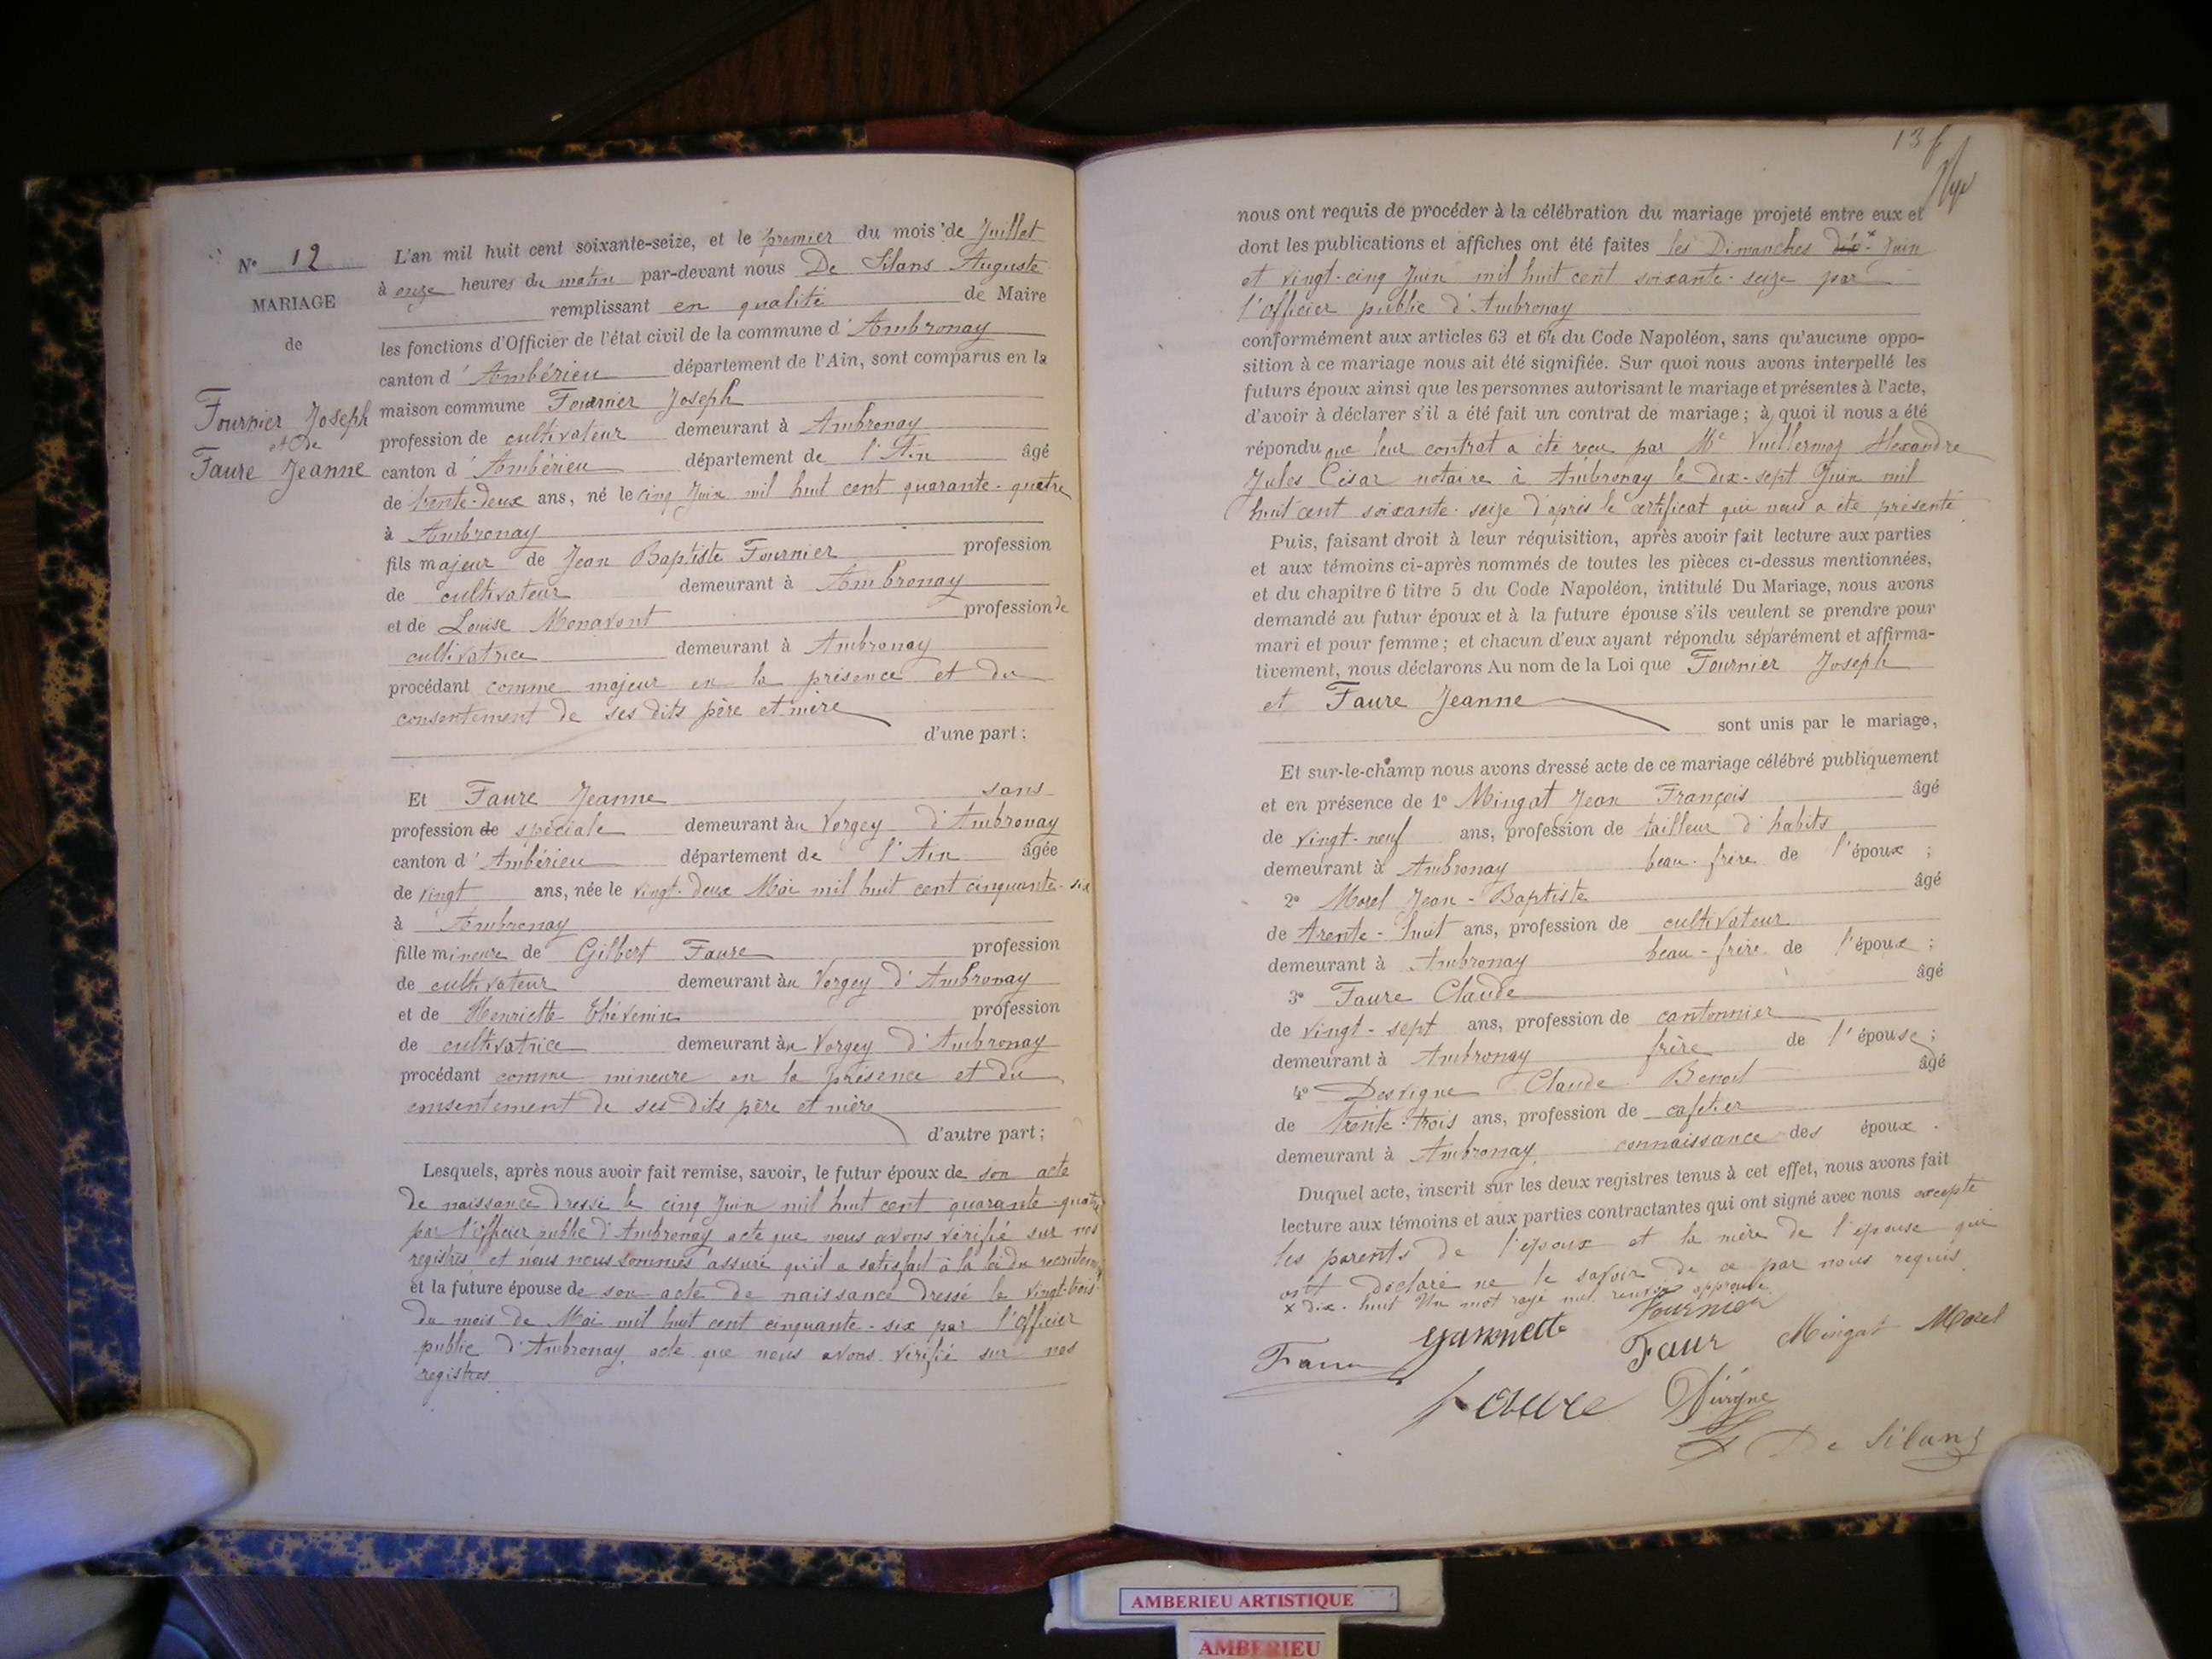 N° 12
MARIAGE
de
Fournier Joseph
et de
Faure Jeanne
L'an mil huit cent soixante-seize, et le premier du mois de Juillet
à onze heures du matin par-devant nous De Silans Auguste
remplissant en qualité de Maire
les fonctions d'Officier de l'état civil de la commune d'Ambronay
canton d'Ambérieu département de l'Ain, sont comparus en la
maison commune Fournier Joseph
profession de cultivateur demeurant à Ambronay
canton d'Ambérieu département de l'Ain âgé
de trente-deux ans, né le cinq Juin mil huit cent quarante-quatre
à Ambronay
fils majeur de Jean Baptiste Fournier profession
de cultivateur demeurant à Ambronay
et de Louise Monavont profession de
cultivatrice demeurant à Ambronay
procédant comme majeur en la présence et du
consentement de ses dits père et mère
d'une part;
Et Faure Jeanne sans
profession de spéciale demeurant au Vorgey d'Ambronay
canton d'Ambérieu département de l'Ain âgée
de vingt ans, née le vingt-deux Mai mil huit cent cinquante-six
à Ambronay
fille mineure de Gilbert Faure profession
de cultivateur demeurant au Vorgey d'Ambronay
et de Henriette Thévenin profession
de cultivatrice demeurant au Vorgey d'Ambronay
procédant comme mineure en la présence et du
consentement de ses dits père et mère
d'autre part;
Lesquels, après nous avoir fait remise, savoir, le futur époux de son acte
de naissance dressé le cinq Juin mil huit cent quarante-quatre
par l'officier public d'Ambronay acte que nous avons vérifié sur nos
registres et nous nous sommes assuré qu'il a satisfait à la loi du recrutement
et la future épouse de son acte de naissance dressé le vingt-trois
du mois de Mai mil huit cent cinquante-six par l'Officier
public d'Ambronay, acte que nous avons vérifié sur nos
registres
136
nous ont requis de procéder à la célébration du mariage projeté entre eux et
dont les publications et affiches ont été faites les Dimanches dix x Juin
et vingt-cinq Juin mil huit cent soixante-seize par
l'officier public d'Ambronay
conformément aux articles 63 et 64 du Code Napoléon, sans qu'aucune oppo-
sition à ce mariage nous ait été signifiée. Sur quoi nous avons interpellé les
futurs époux ainsi que les personnes autorisant le mariage et présentes à l'acte,
d'avoir à déclarer s'il a été fait un contrat de mariage; à quoi il nous a été
répondu que leur contrat a été reçu par Me Vuillermoz Alexandre
Jules César notaire à Ambronay le dix-sept Juin mil
huit cent soixante-seize d'après le certificat qui nous a été présenté
Puis, faisant droit à leur réquisition, après avoir fait lecture aux parties
et aux témoins ci-après nommés de toutes les pièces ci-dessus mentionnées,
et du chapitre 6 titre 5 du Code Napoléon, intitulé Du Mariage, nous avons
demandé au futur époux et à la future épouse s'ils veulent se prendre pour
mari et pour femme; et chacun d'eux ayant répondu séparément et affirma-
tivement, nous déclarons Au nom de la Loi que Fournier Joseph
et Faure Jeanne
sont unis par le mariage,
Et sur-le-champ nous avons dressé acte de ce mariage célébré publiquement
et en présence de 1° Mingat Jean François âgé
de vingt-neuf ans, profession de tailleur d'habits
demeurant à Ambronay beau-frère de l'époux;
2° Morel Jean-Baptiste âgé
de trente-huit ans, profession de cultivateur
demeurant à Ambronay beau-frère de l'époux;
3° Faure Claude âgé
de vingt-sept ans, profession de cantonnier
demeurant à Ambronay frère de l'épouse;
4° Desvigne Claude Benoit âgé
de trente-trois ans, profession de cafetier
demeurant à Ambronay, connaissance des époux.
Duquel acte, inscrit sur les deux registres tenus à cet effet, nous avons fait
lecture aux témoins et aux parties contractantes qui ont signé avec nous excepté
les parents de l'époux et la mère de l'épouse qui
ont déclaré ne le savoir de ce par nous requis
x dix-huit Un mot rayé nul renvoi approuvé
Fournier
Jannette
Faur Mingat Morel
Faure
De Silans
AMBERIEU ARTISTIQUE
AMBERIEU